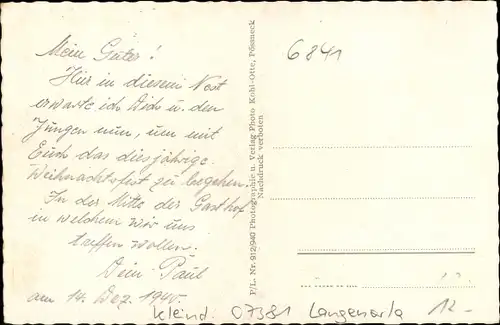 Mein Guter!
Hier in diesem Nest
erwarte ich Dich u. den
Jungen nun, um mit
Euch das diesjährige
Weihnachtsfest zu begehen.
In der Mitte der Gasthof
in welchem wir uns
treffen wollen.
Dein Paul
am 14. Dez. 1940.
P./L. Nr. 912/940 Photographie u. Verlag Photo Kohl-Otte, Pößneck
Nachdruck verboten
6841
Kleind. 07381 Langenorla 12.-